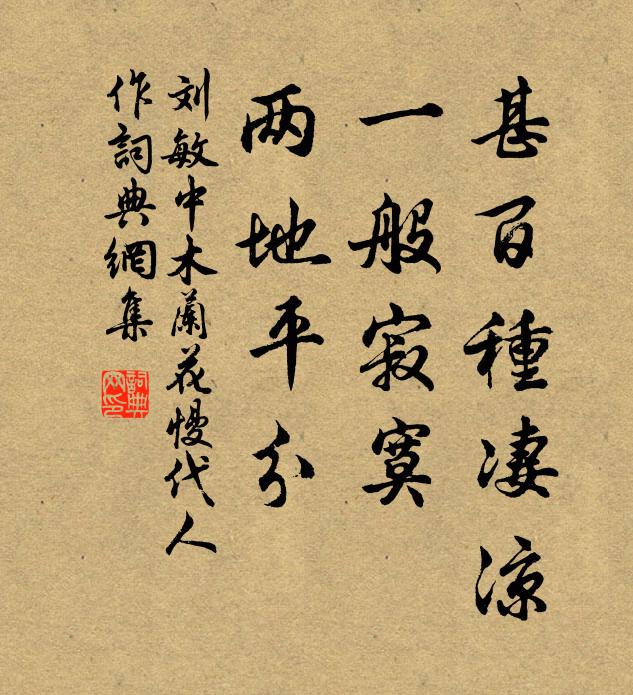 甚百種凄涼
一般寂寞
两地平分
刘敏中木蘭花慢代人
作詞典網集
詞典網印